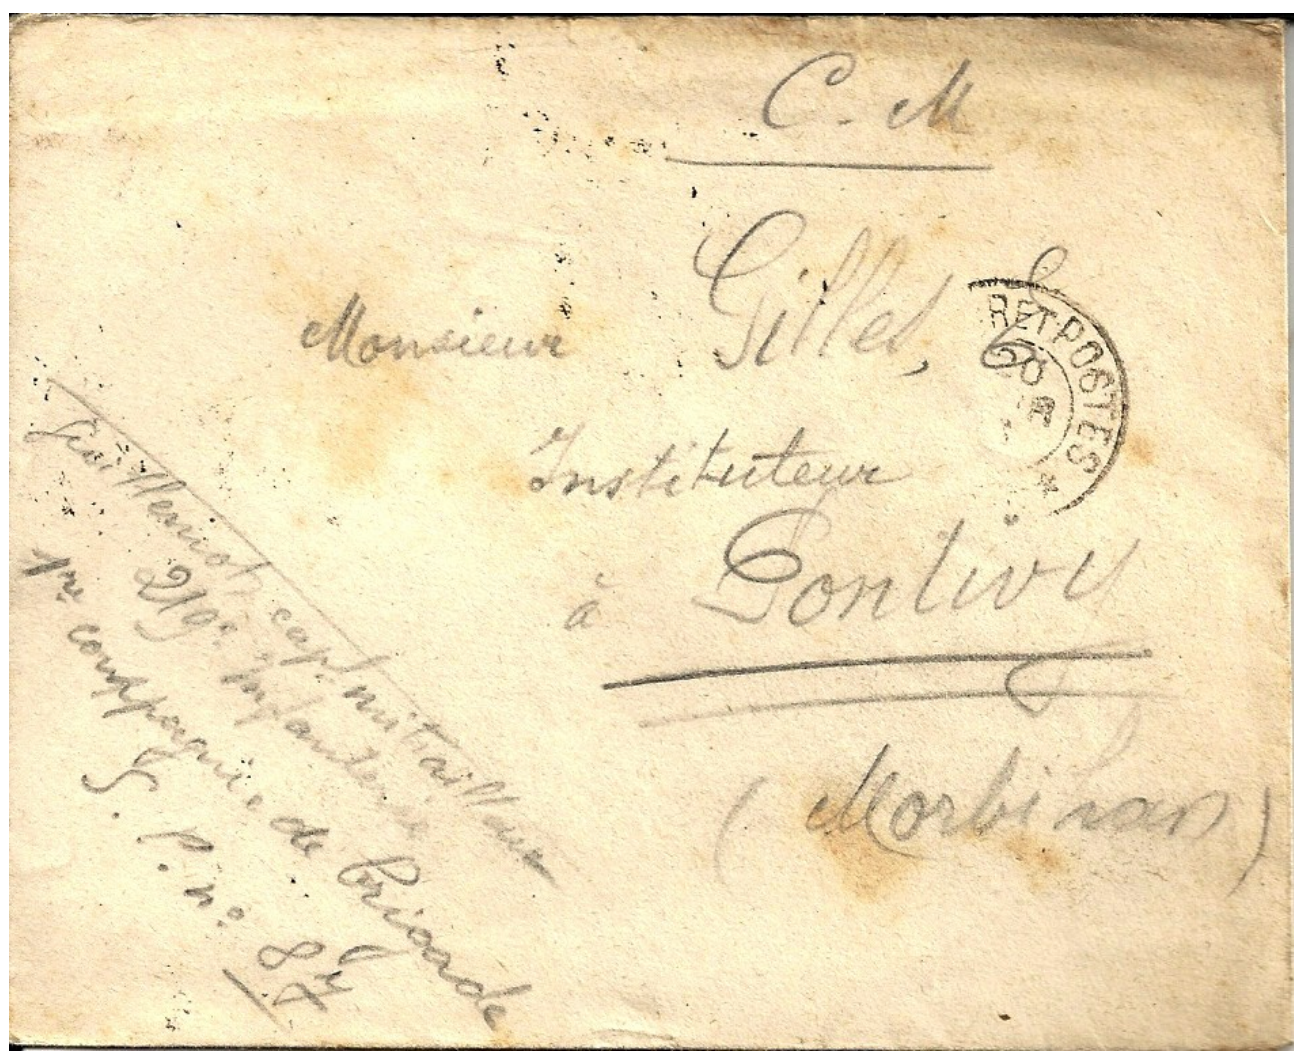 C. M
Monsieur Gillet,
Instituteur
à Pontivy
(Morbihan)
TRÉSOR ET POSTES
20
cap. mitrailleur
219e Infanterie
1re compagnie de brigade
S. P. n° 87